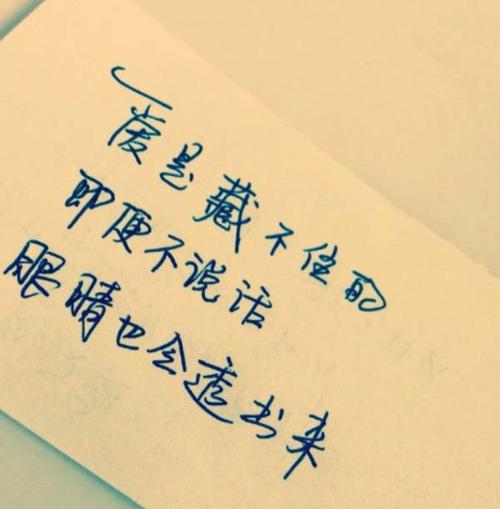 爱是藏不住的
即便不说话
眼睛也会透出来